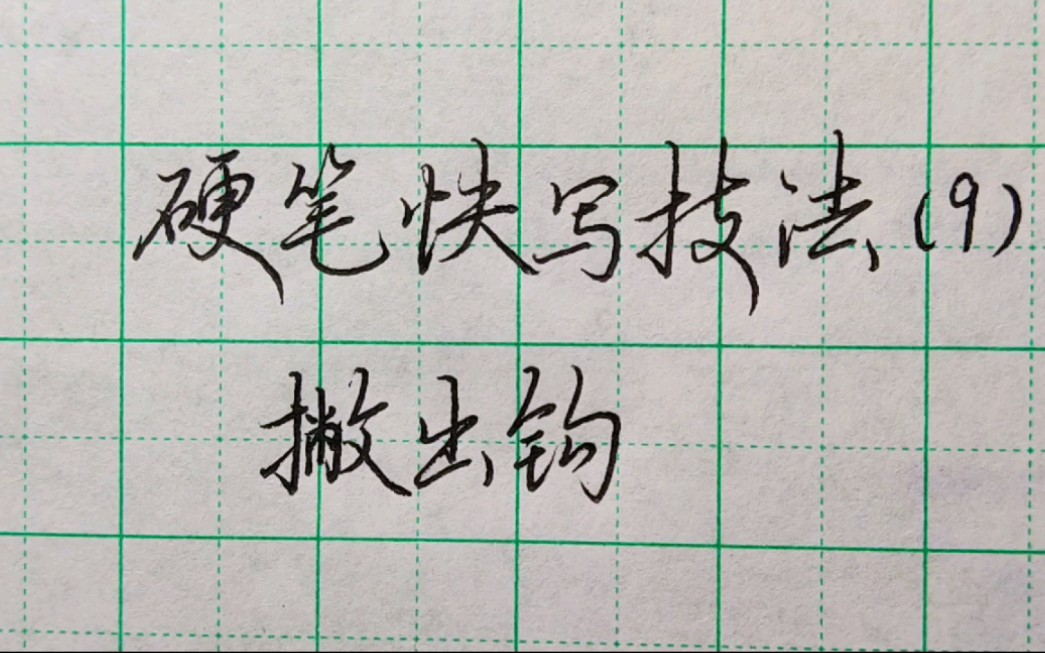 硬笔快写技法(9)
撇出钩